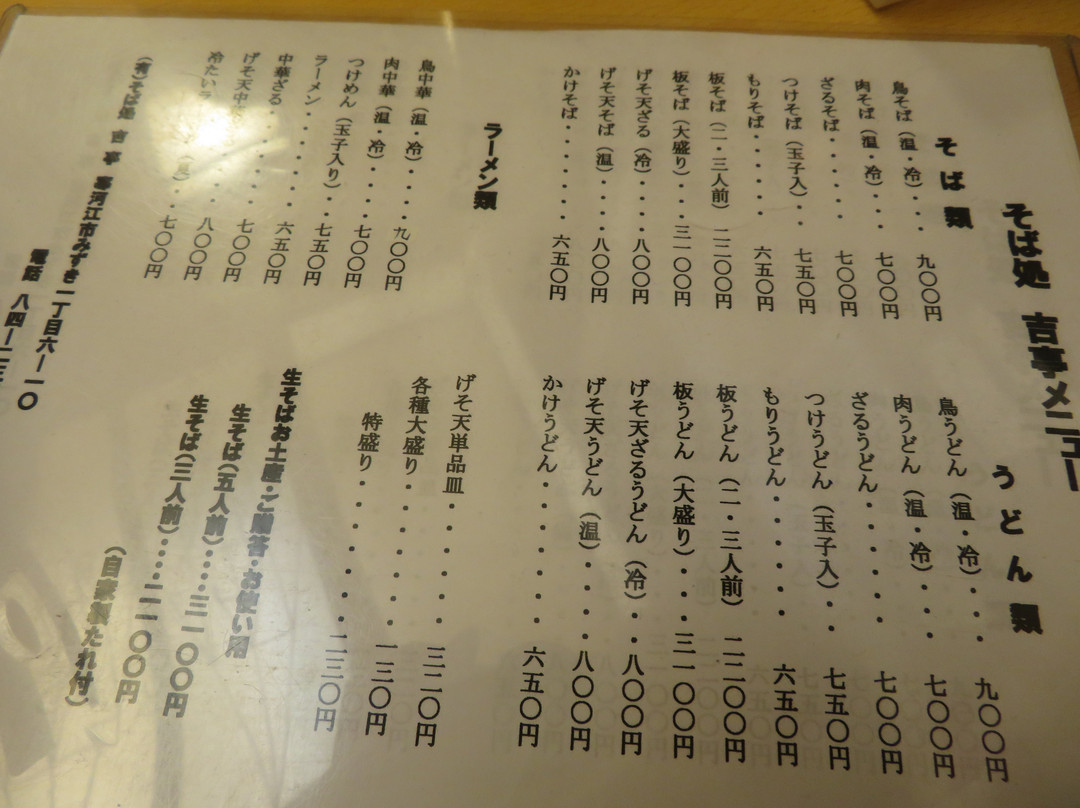 そば処 吉亭メニュー
そば類
鳥そば（温・冷）・・・九〇〇円
肉そば（温・冷）・・・七〇〇円
ざるそば・・・・・七〇〇円
つけそば（玉子入）・・七五〇円
もりそば・・・・・・六五〇円
板そば（二・三人前）二二〇〇円
板そば（大盛り）・・三一〇〇円
げそ天ざる（冷）・・・八〇〇円
げそ天そば（温）・・・八〇〇円
かけそば・・・・・・六五〇円
うどん類
鳥うどん（温・冷）・・・九〇〇円
肉うどん（温・冷）・・・七〇〇円
ざるうどん・・・・・七〇〇円
つけうどん（玉子入）・・七五〇円
もりうどん・・・・・・六五〇円
板うどん（二・三人前）二二〇〇円
板うどん（大盛り）・・・三一〇〇円
げそ天ざるうどん（冷）・・八〇〇円
げそ天うどん（温）・・・・八〇〇円
かけうどん・・・・・・・六五〇円
ラーメン類
鳥中華（温・冷）・・・九〇〇円
肉中華（温・冷）・・・七〇〇円
つけめん（玉子入り）・・七五〇円
ラーメン・・・・・・六五〇円
中華ざる・・・・・・七〇〇円
げそ天中・・・八〇〇円
冷たいラ・・七〇〇円
げそ天単品皿・・・・・三二〇円
各種大盛り・・・・・・一三〇円
特盛り・・・・・・二三〇円
生そばお土産・ご贈答・お使い用
生そば（五人前）・・・・三一〇〇円
生そば（三人前）・・・・二一〇〇円
（自家製たれ付）
（有）そば処 吉亭 寒河江市みずき一丁目六―一〇
電話 八四―